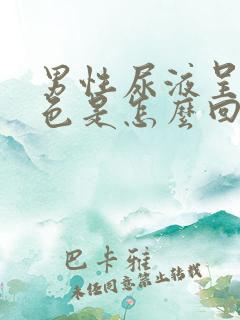 男性尿液呈
色是怎麼回
巴卡雅
未经同意禁止转载